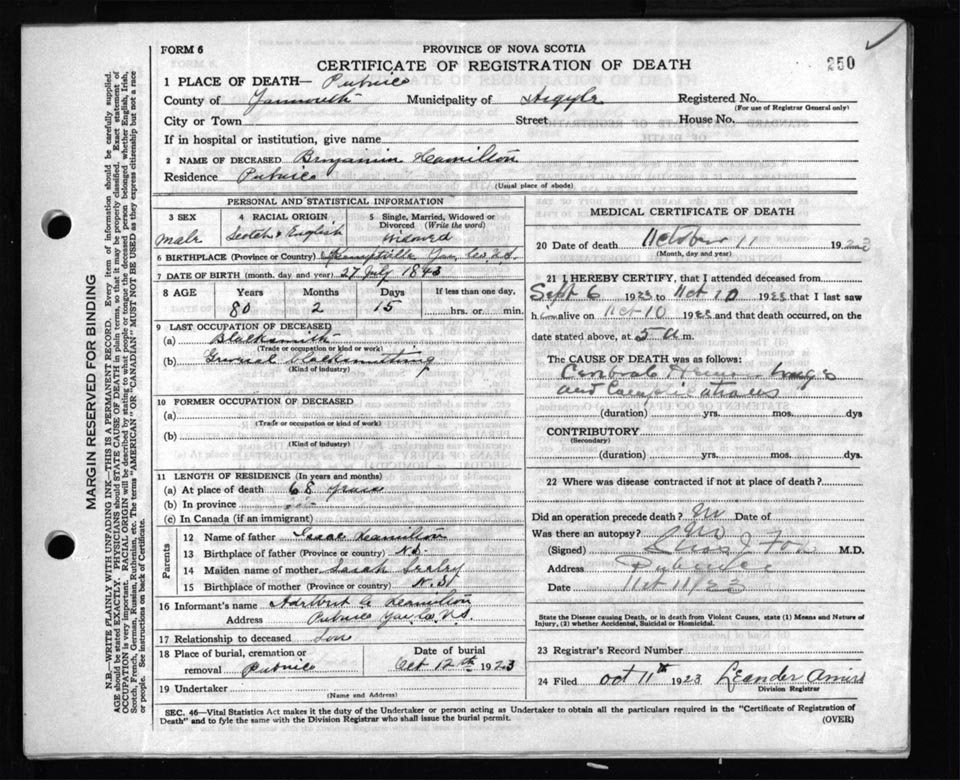 FORM 6
PROVINCE OF NOVA SCOTIA
CERTIFICATE OF REGISTRATION OF DEATH
250
1 PLACE OF DEATH— Pubnico
County of Yarmouth Municipality of Argyle Registered No.
(For use of Registrar General only)
City or Town Street House No.
If in hospital or institution, give name
2 NAME OF DECEASED Benjamin Hamilton
Residence Pubnico
(Usual place of abode)
PERSONAL AND STATISTICAL INFORMATION
3 SEX
male
4 RACIAL ORIGIN
Scotch & English
5 Single, Married, Widowed or Divorced (Write the word)
Widowed
6 BIRTHPLACE (Province or Country) Kemptville Yar. Co. N.S.
7 DATE OF BIRTH (month, day and year) 27 July 1843
8 AGE Years Months Days If less than one day,
80 2 15 hrs. or min.
9 LAST OCCUPATION OF DECEASED
(a) Blacksmith
(Trade or occupation or kind of work)
(b) General blacksmithing
(Kind of industry)
10 FORMER OCCUPATION OF DECEASED
(a)
(Trade or occupation or kind of work)
(b)
(Kind of industry)
11 LENGTH OF RESIDENCE (In years and months)
(a) At place of death 68 years
(b) In province
(c) In Canada (if an immigrant)
Parents
12 Name of father Isaac Hamilton
13 Birthplace of father (Province or country) N.S.
14 Maiden name of mother Sarah
15 Birthplace of mother (Province or country) N.S.
16 Informant's name A. Hamilton
Address Pubnico Yar. Co. N.S.
17 Relationship to deceased Son
18 Place of burial, cremation or removal Pubnico
Date of burial
Oct 12th 1923
19 Undertaker
(Name and Address)
MEDICAL CERTIFICATE OF DEATH
20 Date of death October 11 1923
(Month, day and year)
21 I HEREBY CERTIFY, that I attended deceased from
Sept 6 1923 to Oct 10 1923 that I last saw
him alive on Oct 10 1923 and that death occurred, on the
date stated above, at 5 a m.
The CAUSE OF DEATH was as follows:
Cerebral Hemorrhage
and Complications
(duration) yrs. mos. dys
CONTRIBUTORY
(Secondary)
(duration) yrs. mos. dys.
22 Where was disease contracted if not at place of death?
Did an operation precede death? No Date of
Was there an autopsy? No
(Signed) Chas J Fox M.D.
Address Pubnico
Date Oct 11/23
State the Disease causing Death, or in death from Violent Causes, state (1) Means and Nature of
Injury, (2) whether Accidental, Suicidal or Homicidal.
23 Registrar's Record Number
24 Filed Oct 11th 1923 Leander
Division Registrar
SEC. 46—Vital Statistics Act makes it the duty of the Undertaker or person acting as Undertaker to obtain all the particulars required in the "Certificate of Registration of
Death" and to fyle the same with the Division Registrar who shall issue the burial permit.
(OVER)
MARGIN RESERVED FOR BINDING
N.B.—WRITE PLAINLY WITH UNFADING INK—THIS IS A PERMANENT RECORD. Every item of information should be carefully supplied.
AGE should be stated EXACTLY. PHYSICIANS should STATE CAUSE OF DEATH in plain terms, so that it may be properly classified. Exact statement of
OCCUPATION is very important. RACIAL ORIGIN will be described by stating to what people or tongue the deceased person belonged whether English, Irish,
Scotch, French, German, Russian, Ruthenian, etc. The terms "AMERICAN" OR "CANADIAN" MUST NOT BE USED as they express citizenship but not a race
or people. See instructions on back of Certificate.